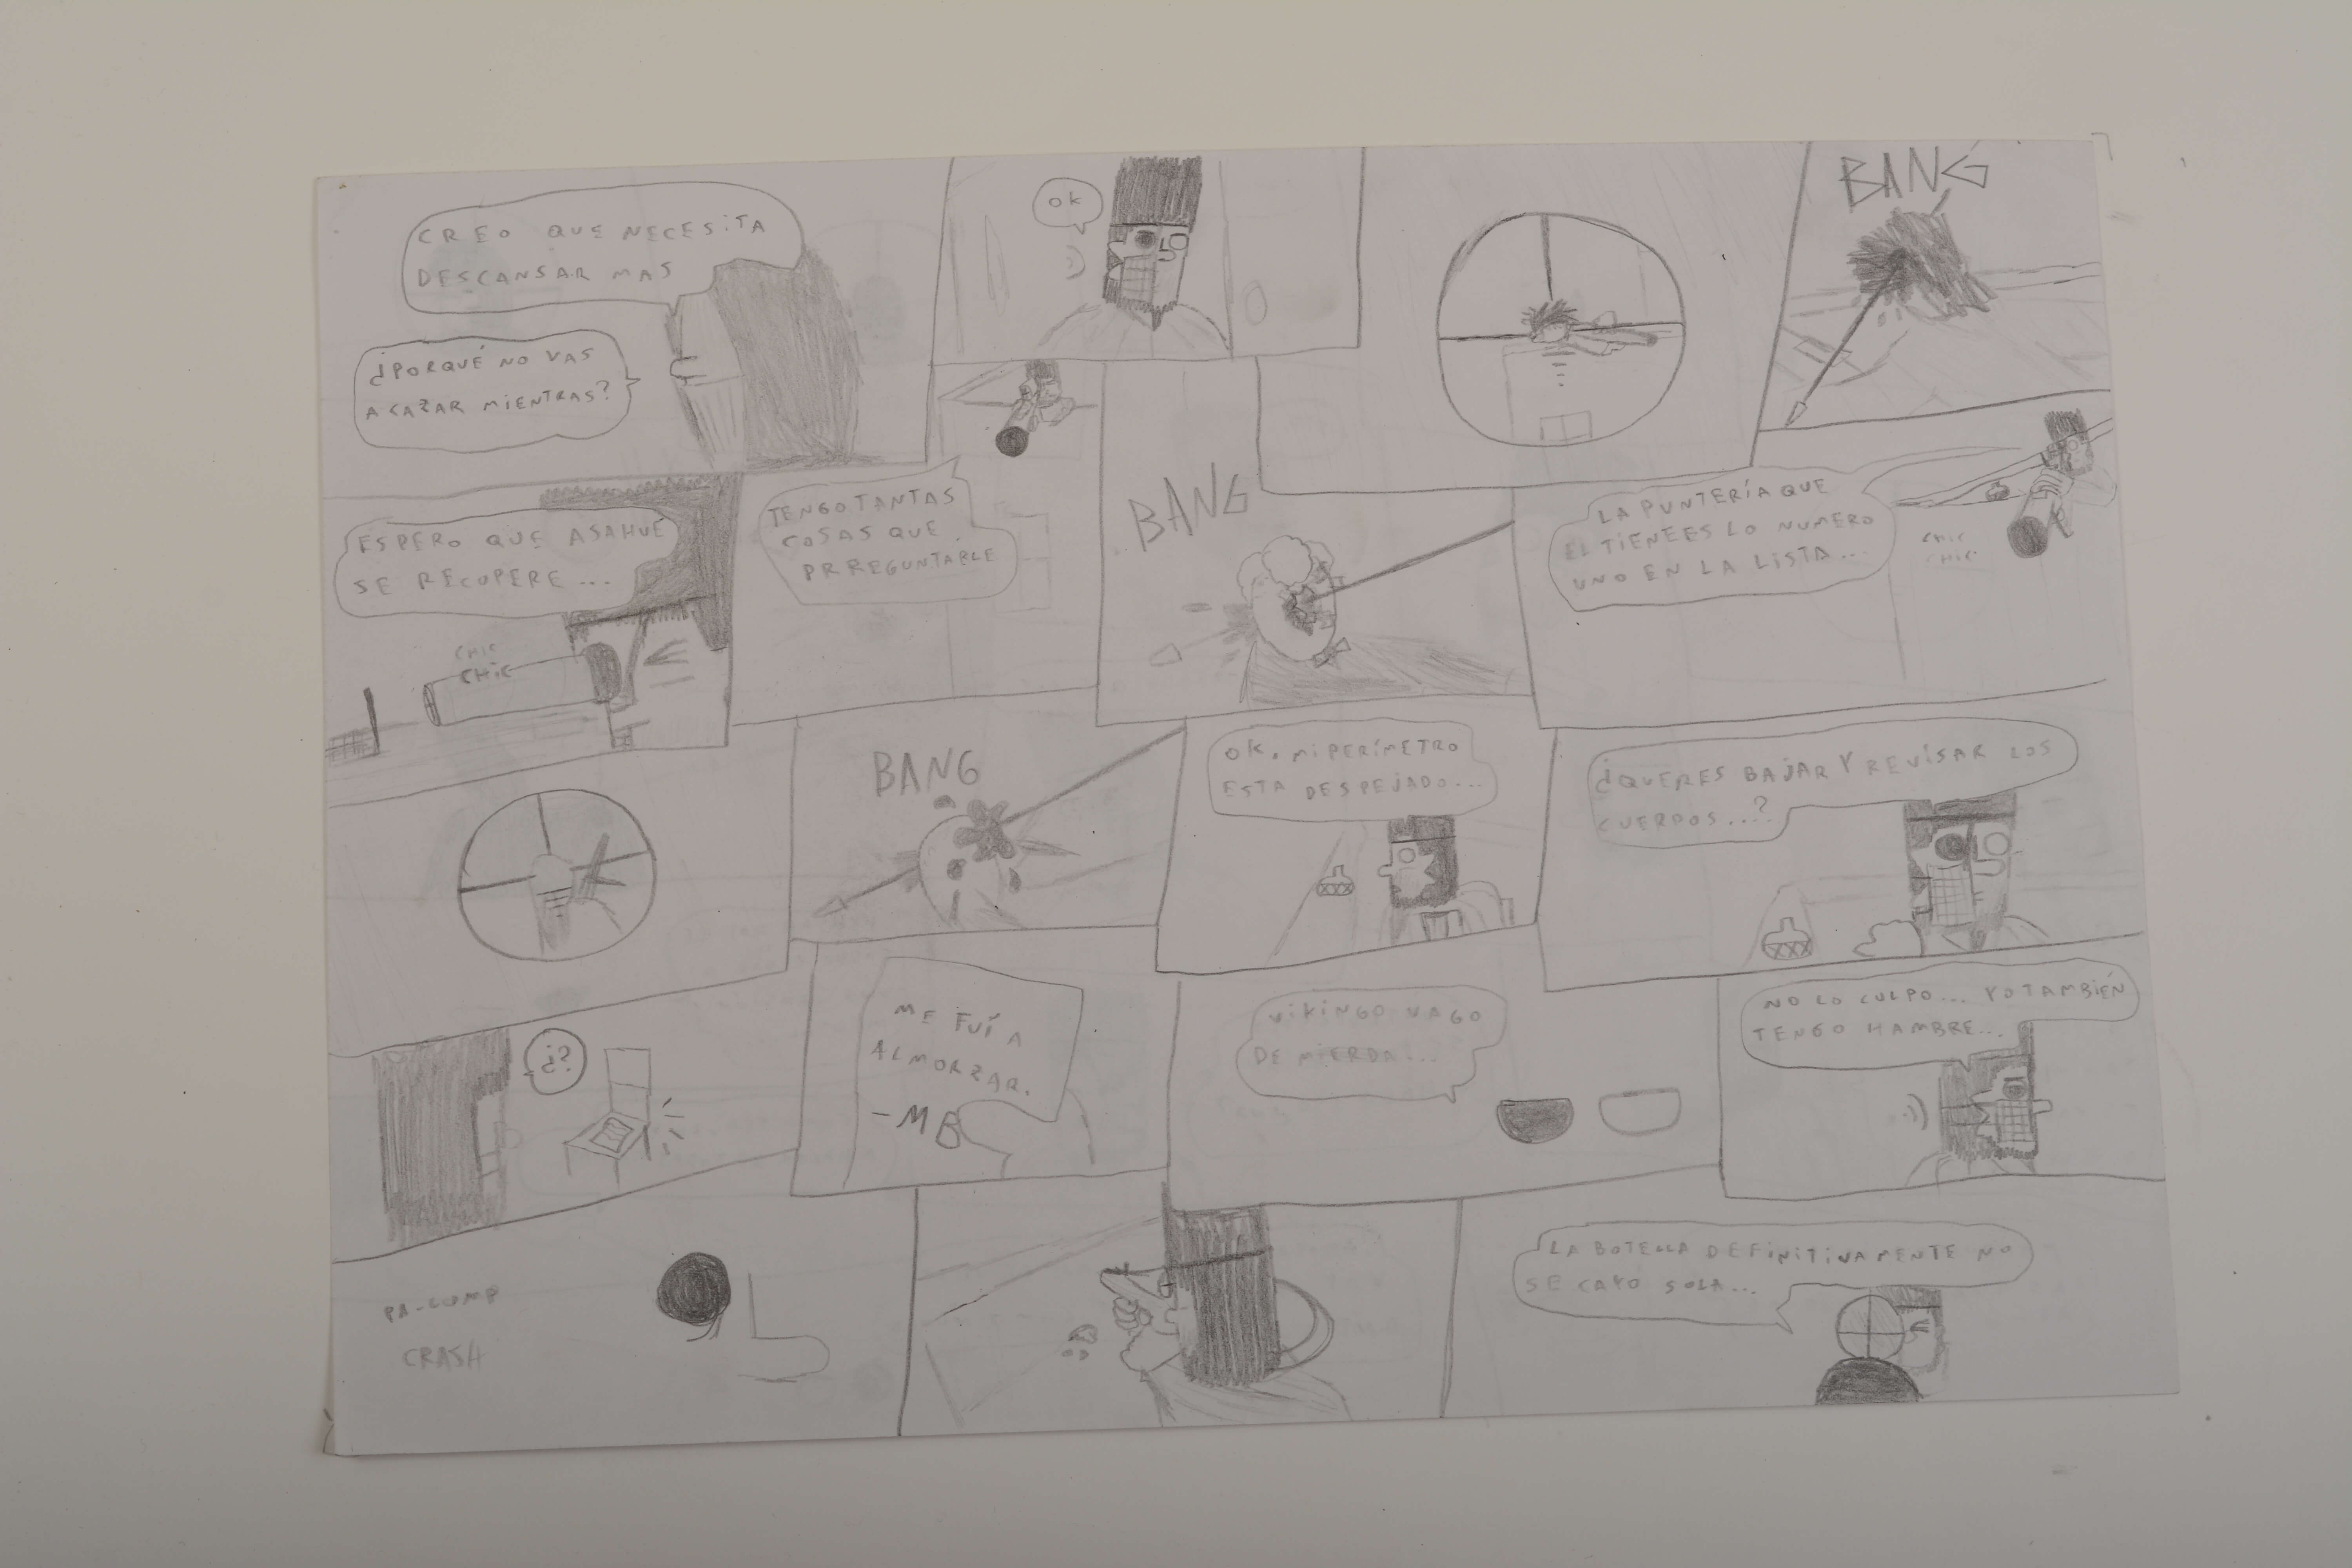 CREO QUE NECESITA
DESCANSAR MAS
¿PORQUÉ NO VAS
A CAZAR MIENTRAS?
OK
BANG
ESPERO QUE ASAHUE
SE RECUPERE...
CHIC
CHIC
TENGO TANTAS
COSAS QUE
PRREGUNTARLE
BANG
LA PUNTERÍA QUE
EL TIENE ES LO NUMERO
UNO EN LA LISTA...
CHIC
CHIC
BANG
OK, MI PERÍMETRO
ESTA DESPEJADO...
¿QUERES BAJAR Y REVISAR LOS
CUERPOS...?
¿?
ME FUÍ A
ALMORZAR.
-MB
VIKINGO VAGO
DE MIERDA...
NO LO CULPO... YO TAMBIÉN
TENGO HAMBRE...
PA-LUMP
CRASH
LA BOTELLA DEFINITIVAMENTE NO
SE CAYO SOLA...